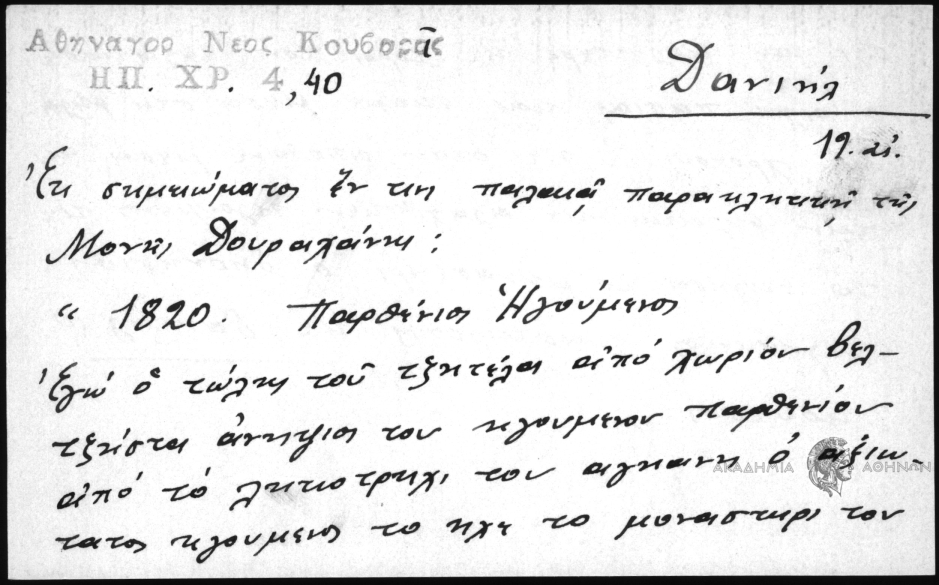 Αθηναγορ Νεος Κουβαρᾶς
ΗΠ. ΧΡ. 4, 40
Δανιήλ
19. αἰ.
Ἐκ σημειώματος ἐν τῃ παλαιᾷ παρακλητικῇ τῆς
Μονῆς Δουραχάνης:
" 1820. Παρθένιος Ἡγούμενος
Ἐγώ ὁ τώλης τοῦ τζητέλαι ἀπό χωριόν βελ-
τζήσται ἀνηψιος του ηγουμενου παρθενίου
ἀπό τό
του αγηανη ὁ ἀξιω-
τατος ηγουμενος το ηχε το μοναστηρι του
ΑΚΑΔΗΜΙΑ ΑΘΗΝΩΝ